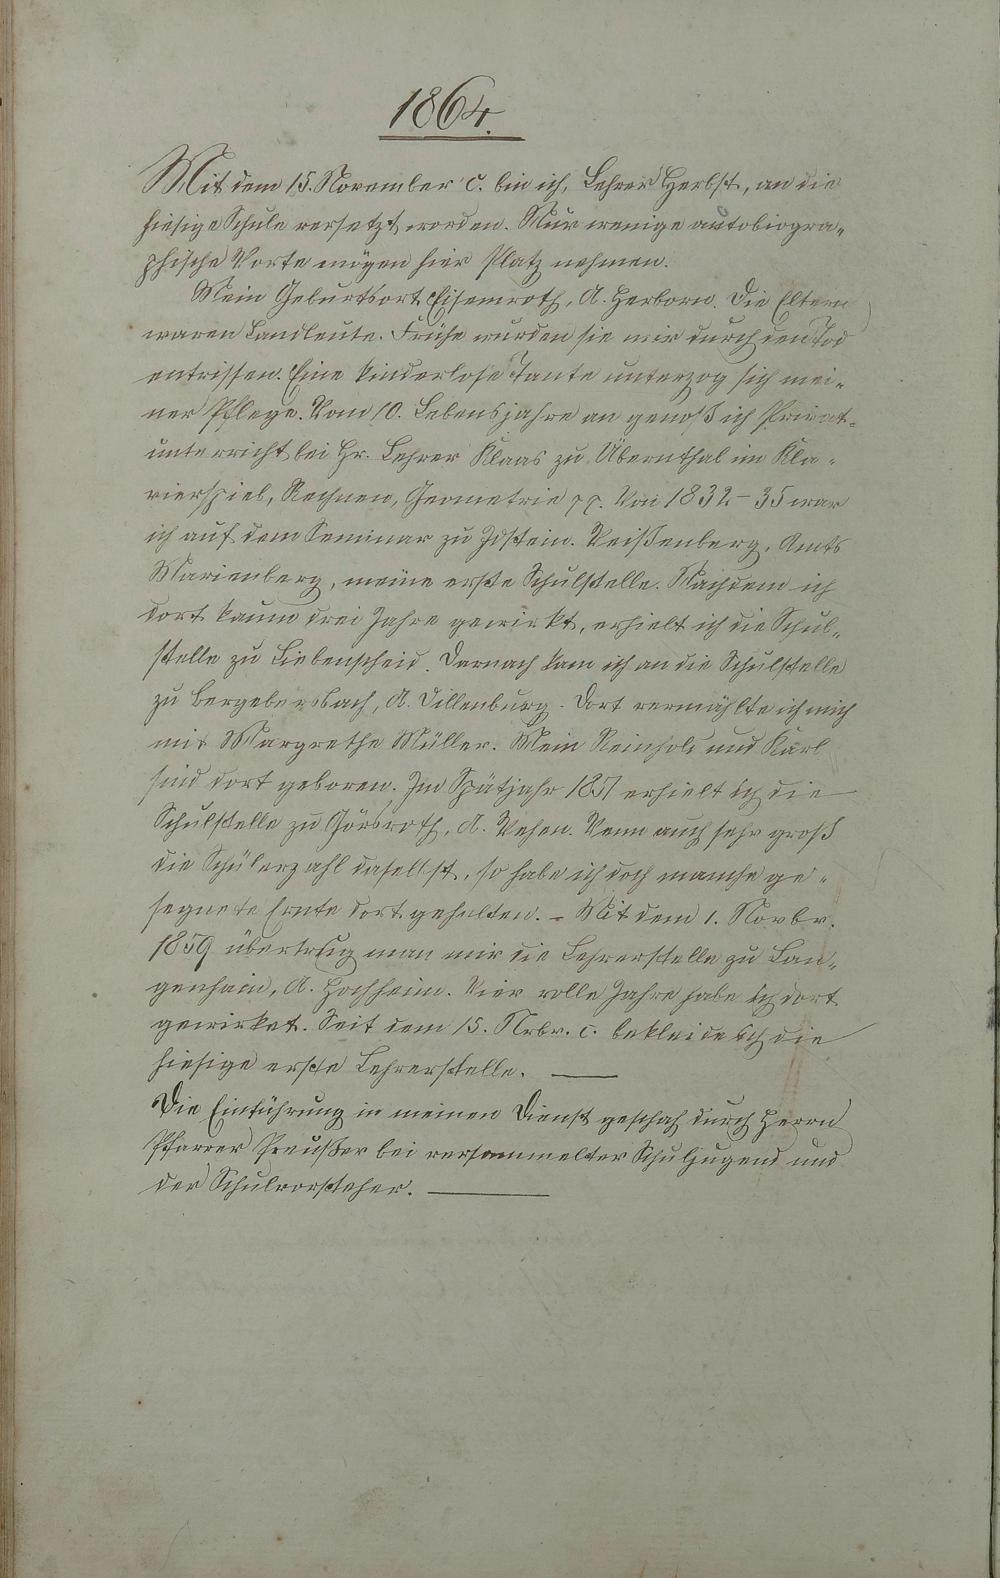 1864.
Mit dem 15. November c. bin ich, Lehrer Herbst, an die
hiesige Schule versetzt worden. Nur wenige autobiogra-
phische Worte mögen hier Platz nehmen.
Mein Geburtsort Eisemroth, A. Herborn. Die Eltern
waren Landleute. Frühe wurden sie mir durch den Tod
entrissen. Eine kinderlose Tante unterzog sich mei-
ner Pflege. Vom 10. Lebensjahre an genoß ich Privat-
unterricht bei Hr. Lehrer Klaas zu Übernthal im Kla-
vierspiel, Rechnen, Geometrie pp. Von 1832-35 war
ich auf dem Seminar zu Idstein. Weißenberg, Amts
Marienberg, meine erste Schulstelle. Nachdem ich
dort kaum drei Jahre gewirkt, erhielt ich die Schul-
stelle zu Liebenscheid. Darnach kam ich an die Schulstelle
zu Bergebersbach, A. Dillenburg. Dort vermählte ich mich
mit Margrethe Müller. Mein Reinhold und Karl
sind dort geboren. Im Spätjahr erhielt ich die
Schulstelle zu Görsroth, A. Wehen. Wenn auch sehr groß
die Schülerzahl daselbst, so habe ich doch manche ge-
segnete Ernte dort gehalten. - Mit dem 1. Novbr.
1859 übertrug man mir die Lehrerstelle zu Lan-
genhain, A. Hochheim. Vier volle Jahre habe ich dort
gewirket. Seit dem 15. Nvbr. c. bekleide ich die
hiesige erste Lehrerstelle. —
Die Einführung in meinen Dienst geschah durch Herrn
Pfarrer Preußer bei versammelter Schuljugend und
der Schulvorsteher. —